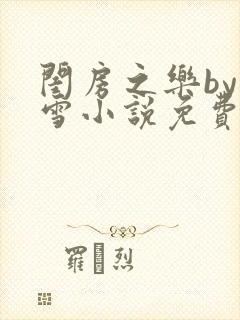 閨房之樂by
雪小說免費
羅 烈